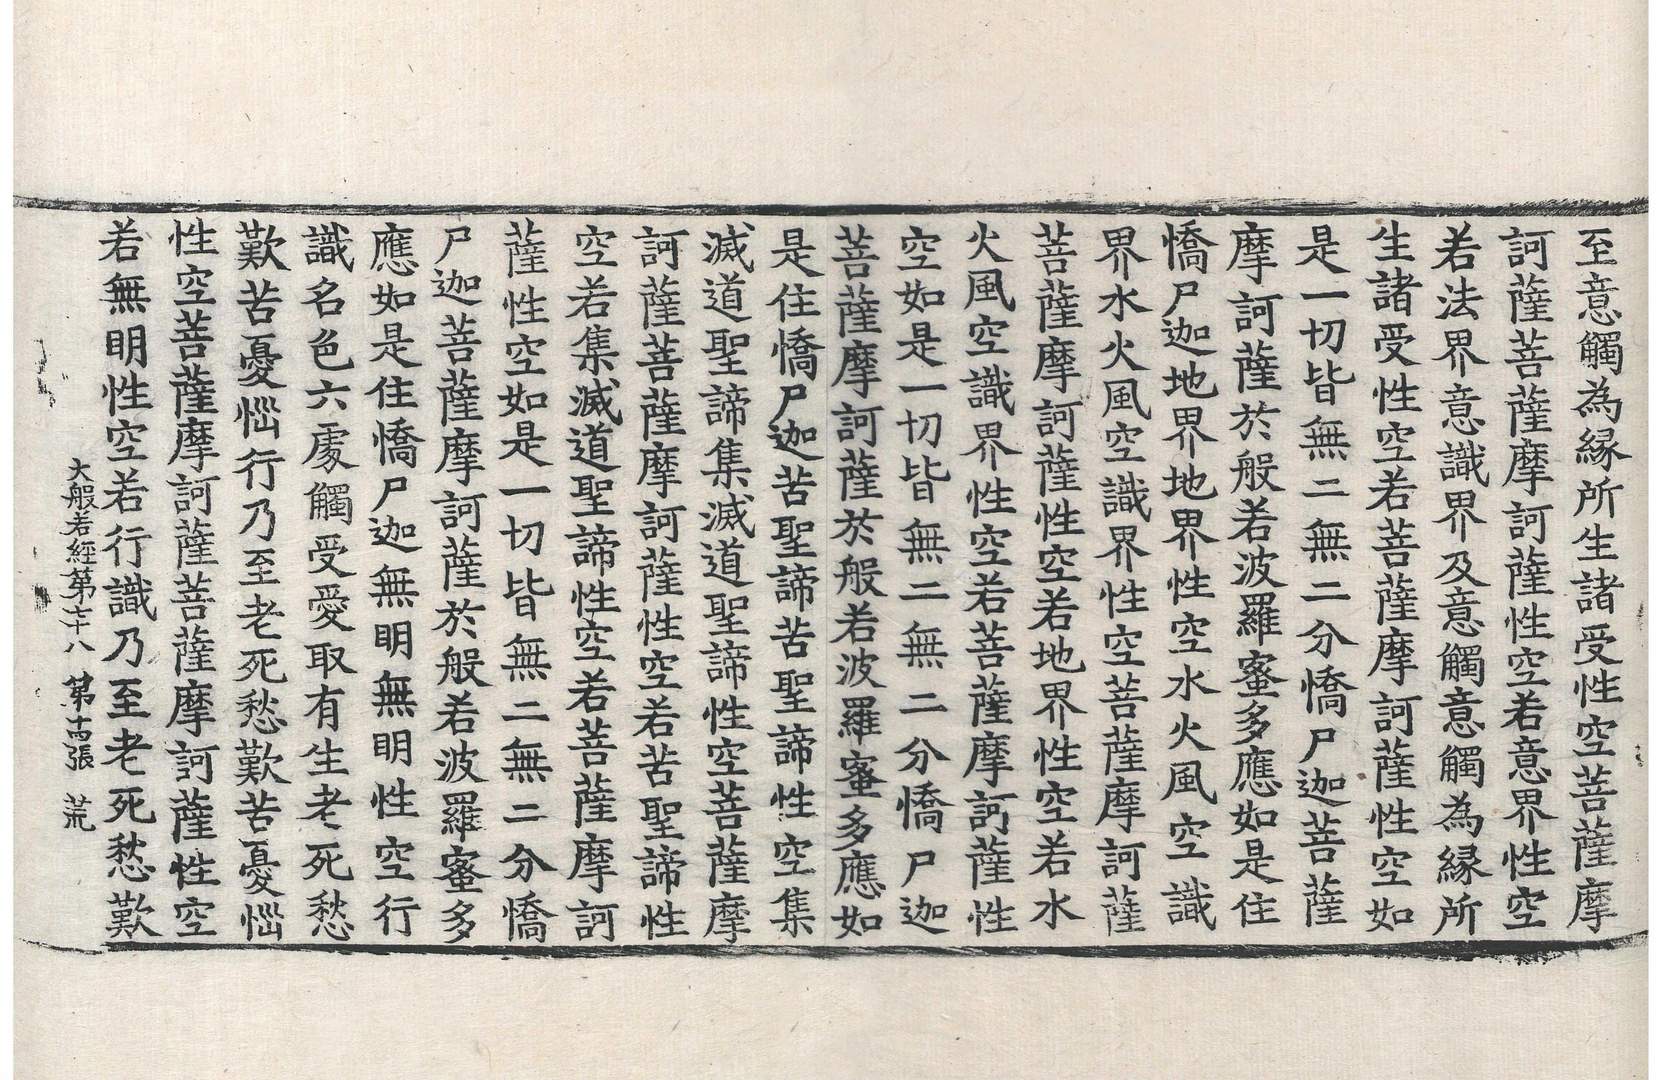 至意觸為縁所生諸受性空菩薩摩
訶薩菩薩摩訶薩性空若意界性空
若法界意識界及意觸意觸為縁所
生諸受性空若菩薩摩訶薩性空如
是一切皆無二無二分憍尸迦菩薩
摩訶薩於般若波羅蜜多應如是住
憍尸迦地界地界性空水火風空識
界水火風空識界性空菩薩摩訶薩
菩薩摩訶薩性空若地界性空若水
火風空識界性空若菩薩摩訶薩性
空如是一切皆無二無二分憍尸迦
菩薩摩訶薩於般若波羅蜜多應如
是住憍尸迦苦聖諦苦聖諦性空集
滅道聖諦集滅道聖諦性空菩薩摩
訶薩菩薩摩訶薩性空若苦聖諦性
空若集滅道聖諦性空若菩薩摩訶
薩性空如是一切皆無二無二分憍
尸迦菩薩摩訶薩於般若波羅蜜多
應如是住憍尸迦無明無明性空行
識名色六處觸受愛取有生老死愁
歎苦憂惱行乃至老死愁歎苦憂惱
性空菩薩摩訶薩菩薩摩訶薩性空
若無明性空若行識乃至老死愁歎
大般若經第七十八 第十四張 荒